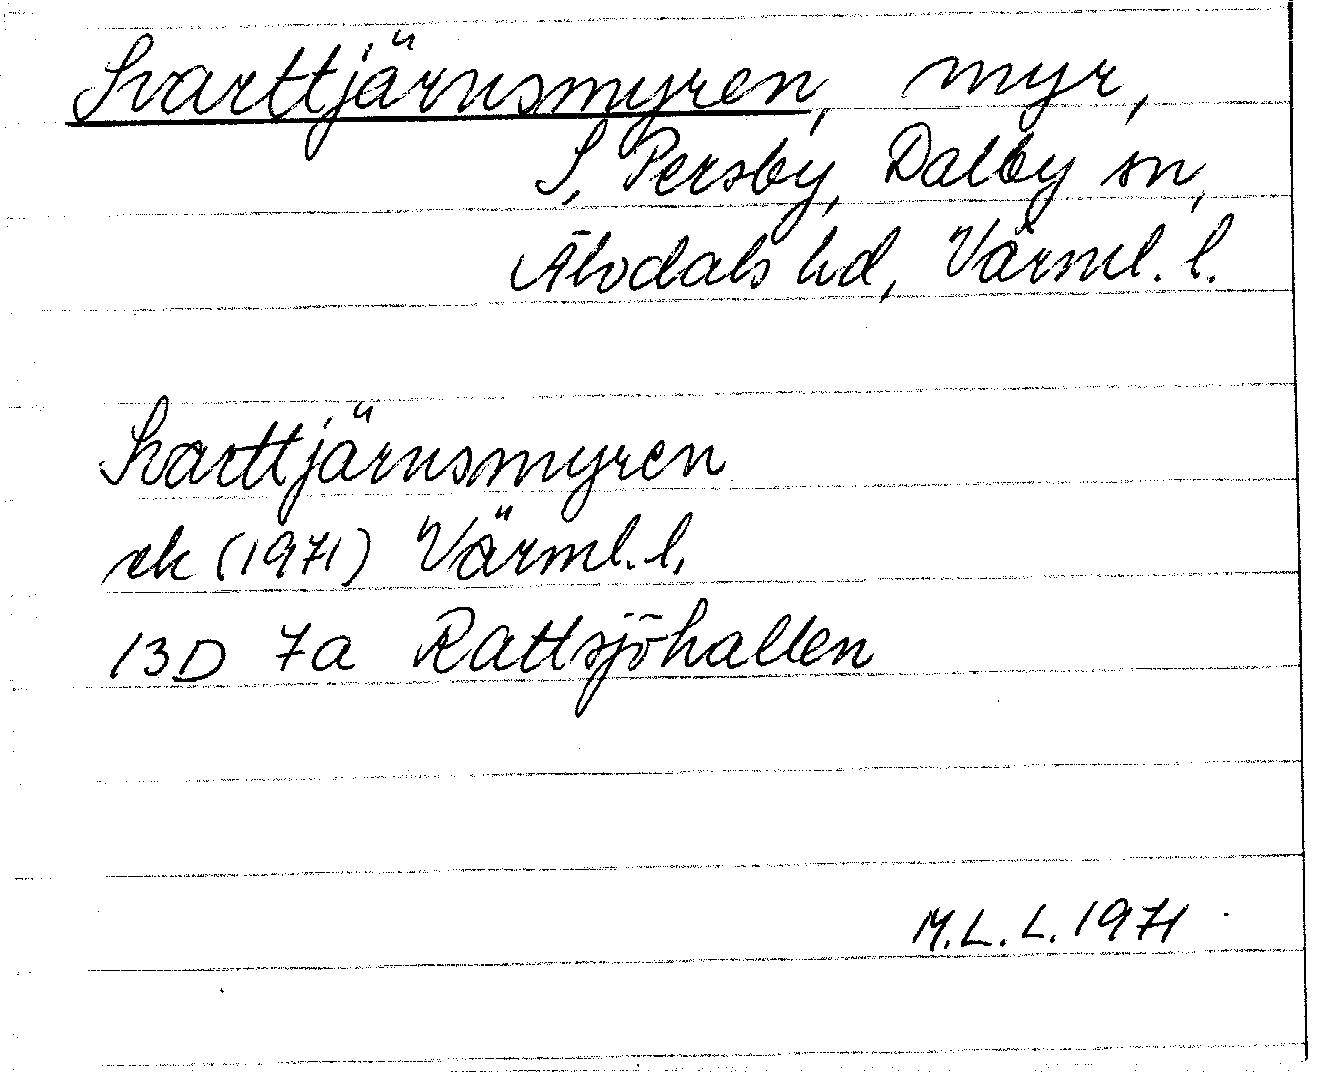 Svarttjärnsmyren, myr,
S. Persby, Dalby sn,
Älvdals hd, Värml. l.
Svarttjärnsmyren
ek (1971) Värml. l.
13D 7a Rattsjöhallen
M.L.L. 1971